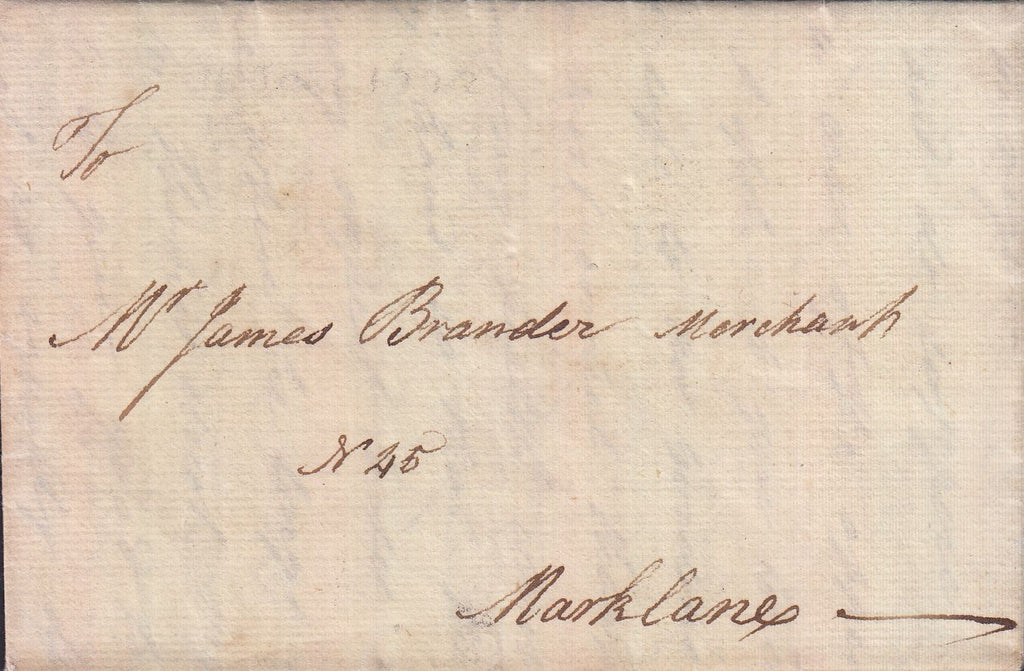 To
Mr James Brander Merchant
N 45
Marklane